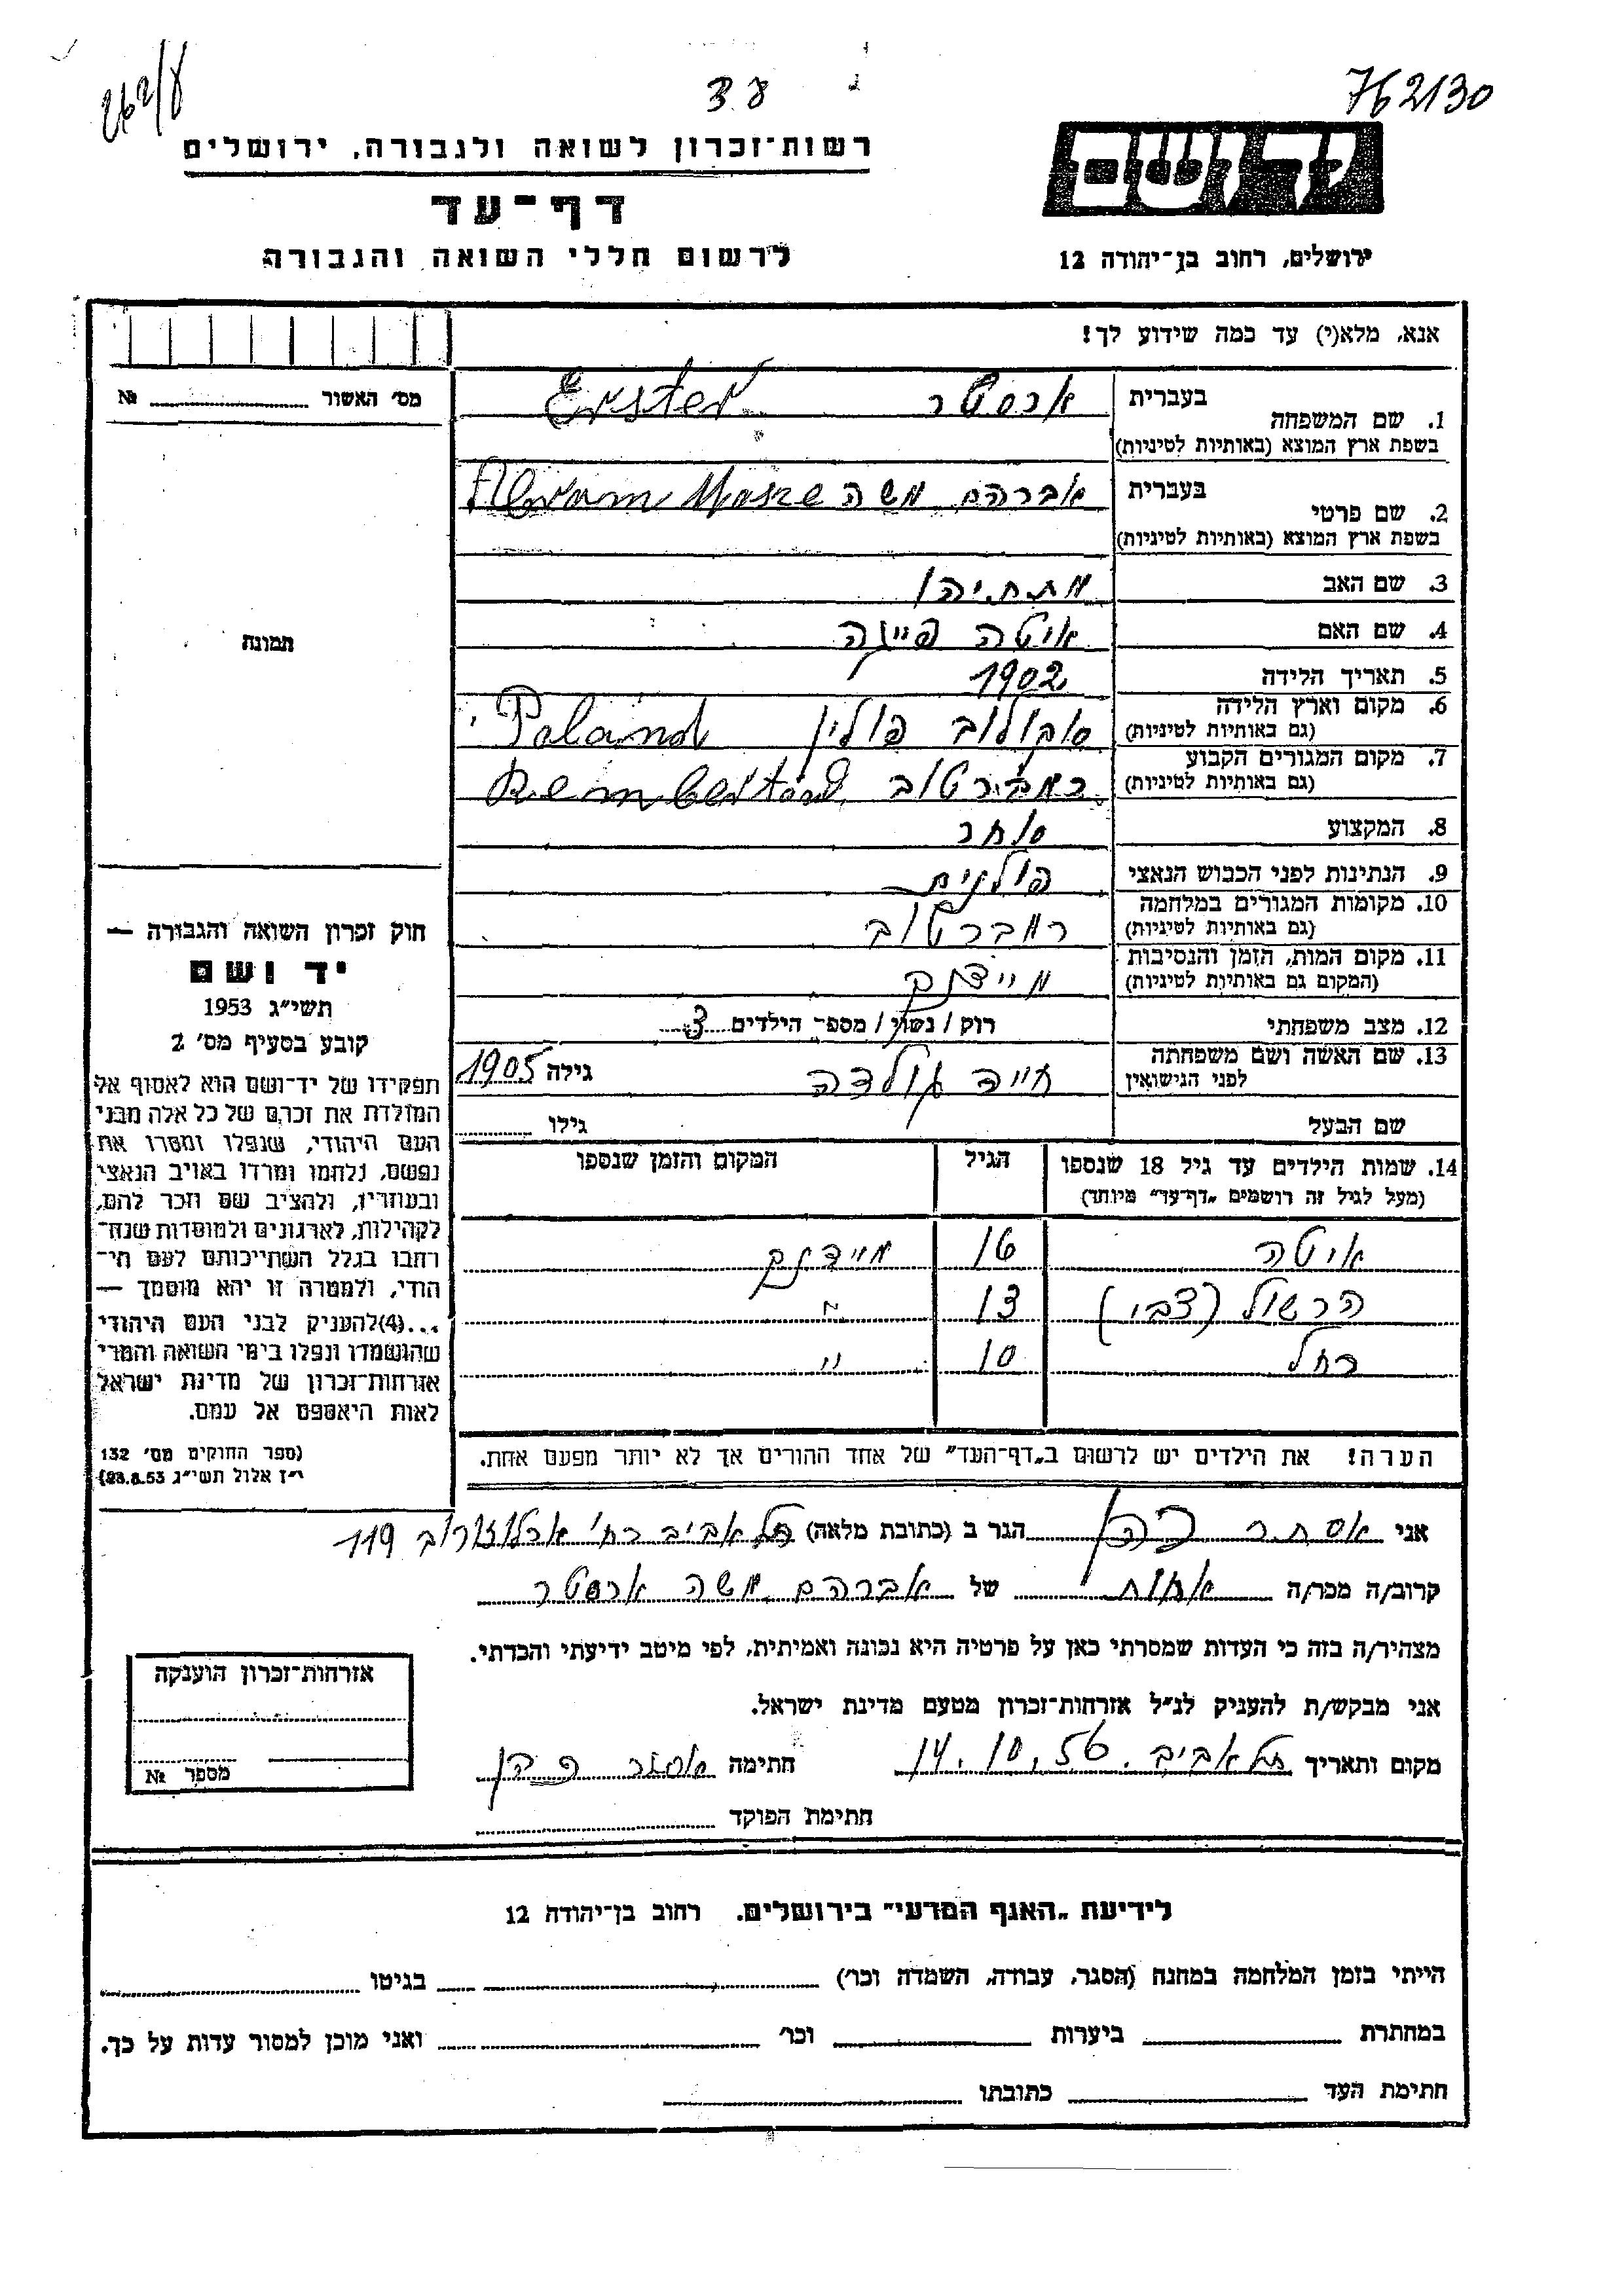 262/8
38
762130
רשות־זכרון לשואה ולגבורה, ירושלים
ידושם
דף־עד
לרשום חללי השואה והגבורה
ירושלים, רחוב בן־יהודה 12
אנא, מלא(י) עד כמה שידוע לך!
מס׳ האשור № 
בעברית ארסטר Erster
1. שם המשפחה
בשפת ארץ המוצא (באותיות לטיניות)
בעברית אברהם משה Abram Moshe
2. שם פרטי
בשפת ארץ המוצא (באותיות לטיניות)
3. שם האב מתתיהו
4. שם האם איטה פייגה
תמונה
5. תאריך הלידה 1902
6. מקום וארץ הלידה סוקולוב פולין Poland
(גם באותיות לטיניות)
7. מקום המגורים הקבוע רמברטוב Rembertów
(גם באותיות לטיניות)
8. המקצוע סוחר
9. הנתינות לפני הכבוש הנאצי פולנית
10. מקומות המגורים במלחמה רמברטוב
(גם באותיות לטיניות)
11. מקום המות, הזמן והנסיבות מיידנק
(המקום גם באותיות לטיניות)
12. מצב משפחתי רוק / נשוי / מספר הילדים 3
13. שם האשה ושם משפחתה חייה גולדה גילה 1905
לפני הנישואין
שם הבעל גילו
14. שמות הילדים עד גיל 18 שנספו הגיל המקום והזמן שנספו
(מעל לגיל זה רושמים „דף־עד״ מיוחד)
איטה 16 מיידנק
הרשול (צבי) 13 ״
רחל 10 ״
הערה! את הילדים יש לרשום ב„דף־העד״ של אחד ההורים אך לא יותר מפעם אחת.
חוק זכרון השואה והגבורה —
יד ושם
תשי״ג 1953
קובע בסעיף מס׳ 2
תפקידו של יד־ושם הוא לאסוף אל
המולדת את זכרם של כל אלה מבני
העם היהודי, שנפלו ומסרו את
נפשם, נלחמו ומרדו באויב הנאצי
ובעוזריו, ולהציב שם וזכר להם,
לקהילות, לארגונים ולמוסדות שנח־
רחבו בגלל השתייכותם לעם הי־
הודי, ולמטרה זו יהא מוסמך —
...(4) להעניק לבני העם היהודי
שהושמדו ונפלו בימי השואה והמרי
אזרחות־זכרון של מדינת ישראל
לאות היאספם אל עמם.
(ספר החוקים מס׳ 132
י״ז אלול תשי״ג 28.8.53)
אני אסתר כהן הגר ב (כתובת מלאה) תל אביב רח׳ ארלוזורוב 119
קרוב/ה מכר/ה אחות של אברהם משה ארסטר
מצהיר/ה בזה כי העדות שמסרתי כאן על פרטיה היא נכונה ואמיתית, לפי מיטב ידיעתי והכרתי.
אני מבקש/ת להעניק לנ״ל אזרחות־זכרון מטעם מדינת ישראל.
מקום ותאריך תל אביב. 14.10.56 חתימה אסתר כהן
חתימת הפוקד
אזרחות־זכרון הוענקה
מספר №
לידיעת „האגף המדעי״ בירושלים. רחוב בן־יהודה 12
הייתי בזמן המלחמה במחנה (הסגר, עבודה, השמדה וכר׳) בגיטו
במחתרת ביערות וכר׳ ואני מוכן למסור עדות על כך.
חתימת העד כתובתו